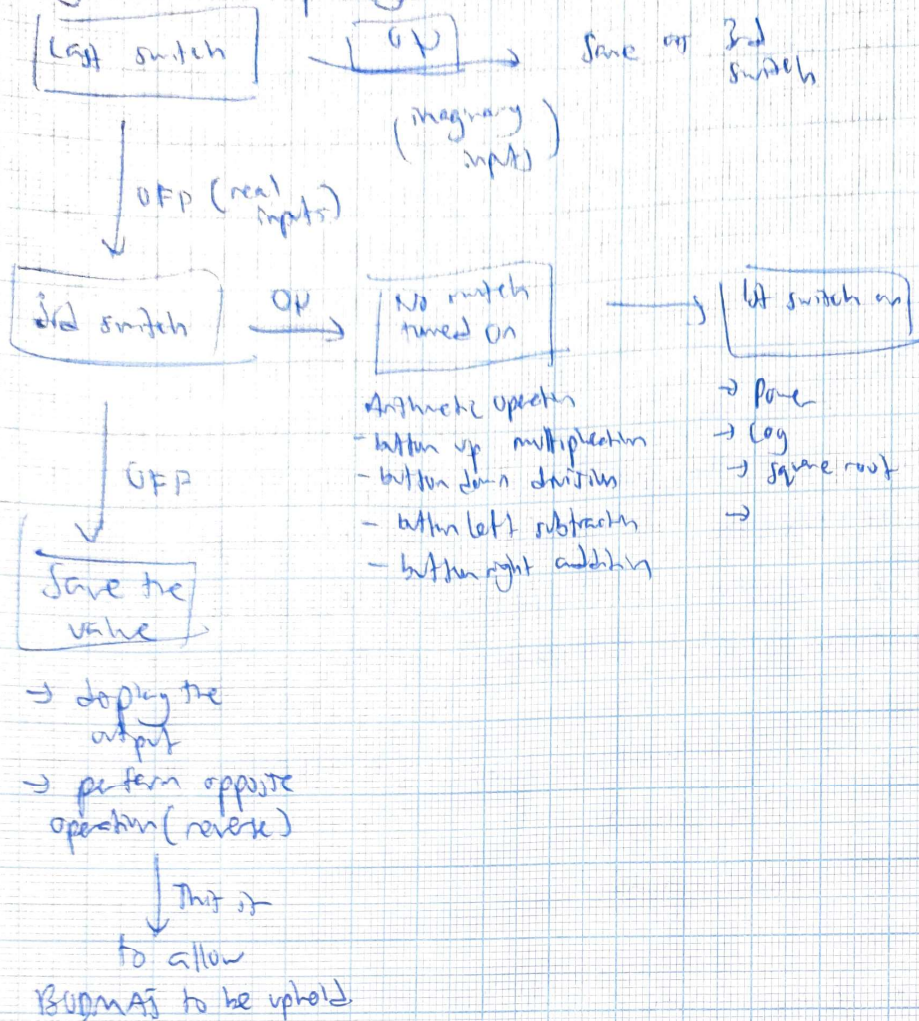 Last switch
ON
Same as 3rd
switch
(imaginary
inputs)
OFF (real
inputs)
3rd switch
ON
No switch
turned on
1st switch on
Arithmetic operation
- button up multiplication
- button down division
- button left subtraction
- button right addition
→ Power
→ Log
→ square root
→
OFF
Save the
value
→ display the
output
→ perform opposite
operation (reverse)
This is
to allow
BODMAS to be uphold